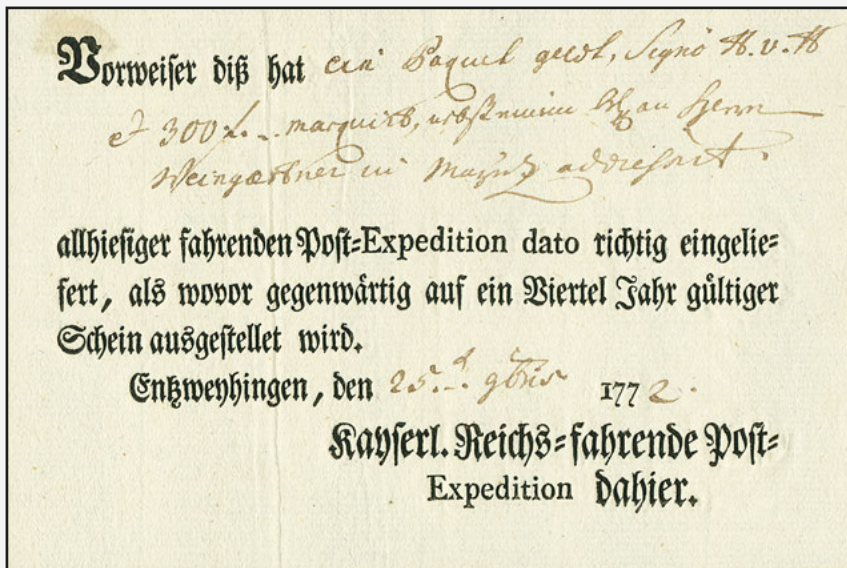 Vorweiser diß hat ein Paquet geldt, Signo H. v. H
300 f. marquirt, an Herrn
Weingærtner in Maÿntz addressirt.
allhiesiger fahrenden Post=Expedition dato richtig eingelie=
fert, als wovor gegenwärtig auf ein Viertel Jahr gültiger
Schein ausgestellet wird.
Entzweyhingen, den 25.t. 9bris 1772.
Kayserl. Reichs=fahrende Post=
Expedition dahier.